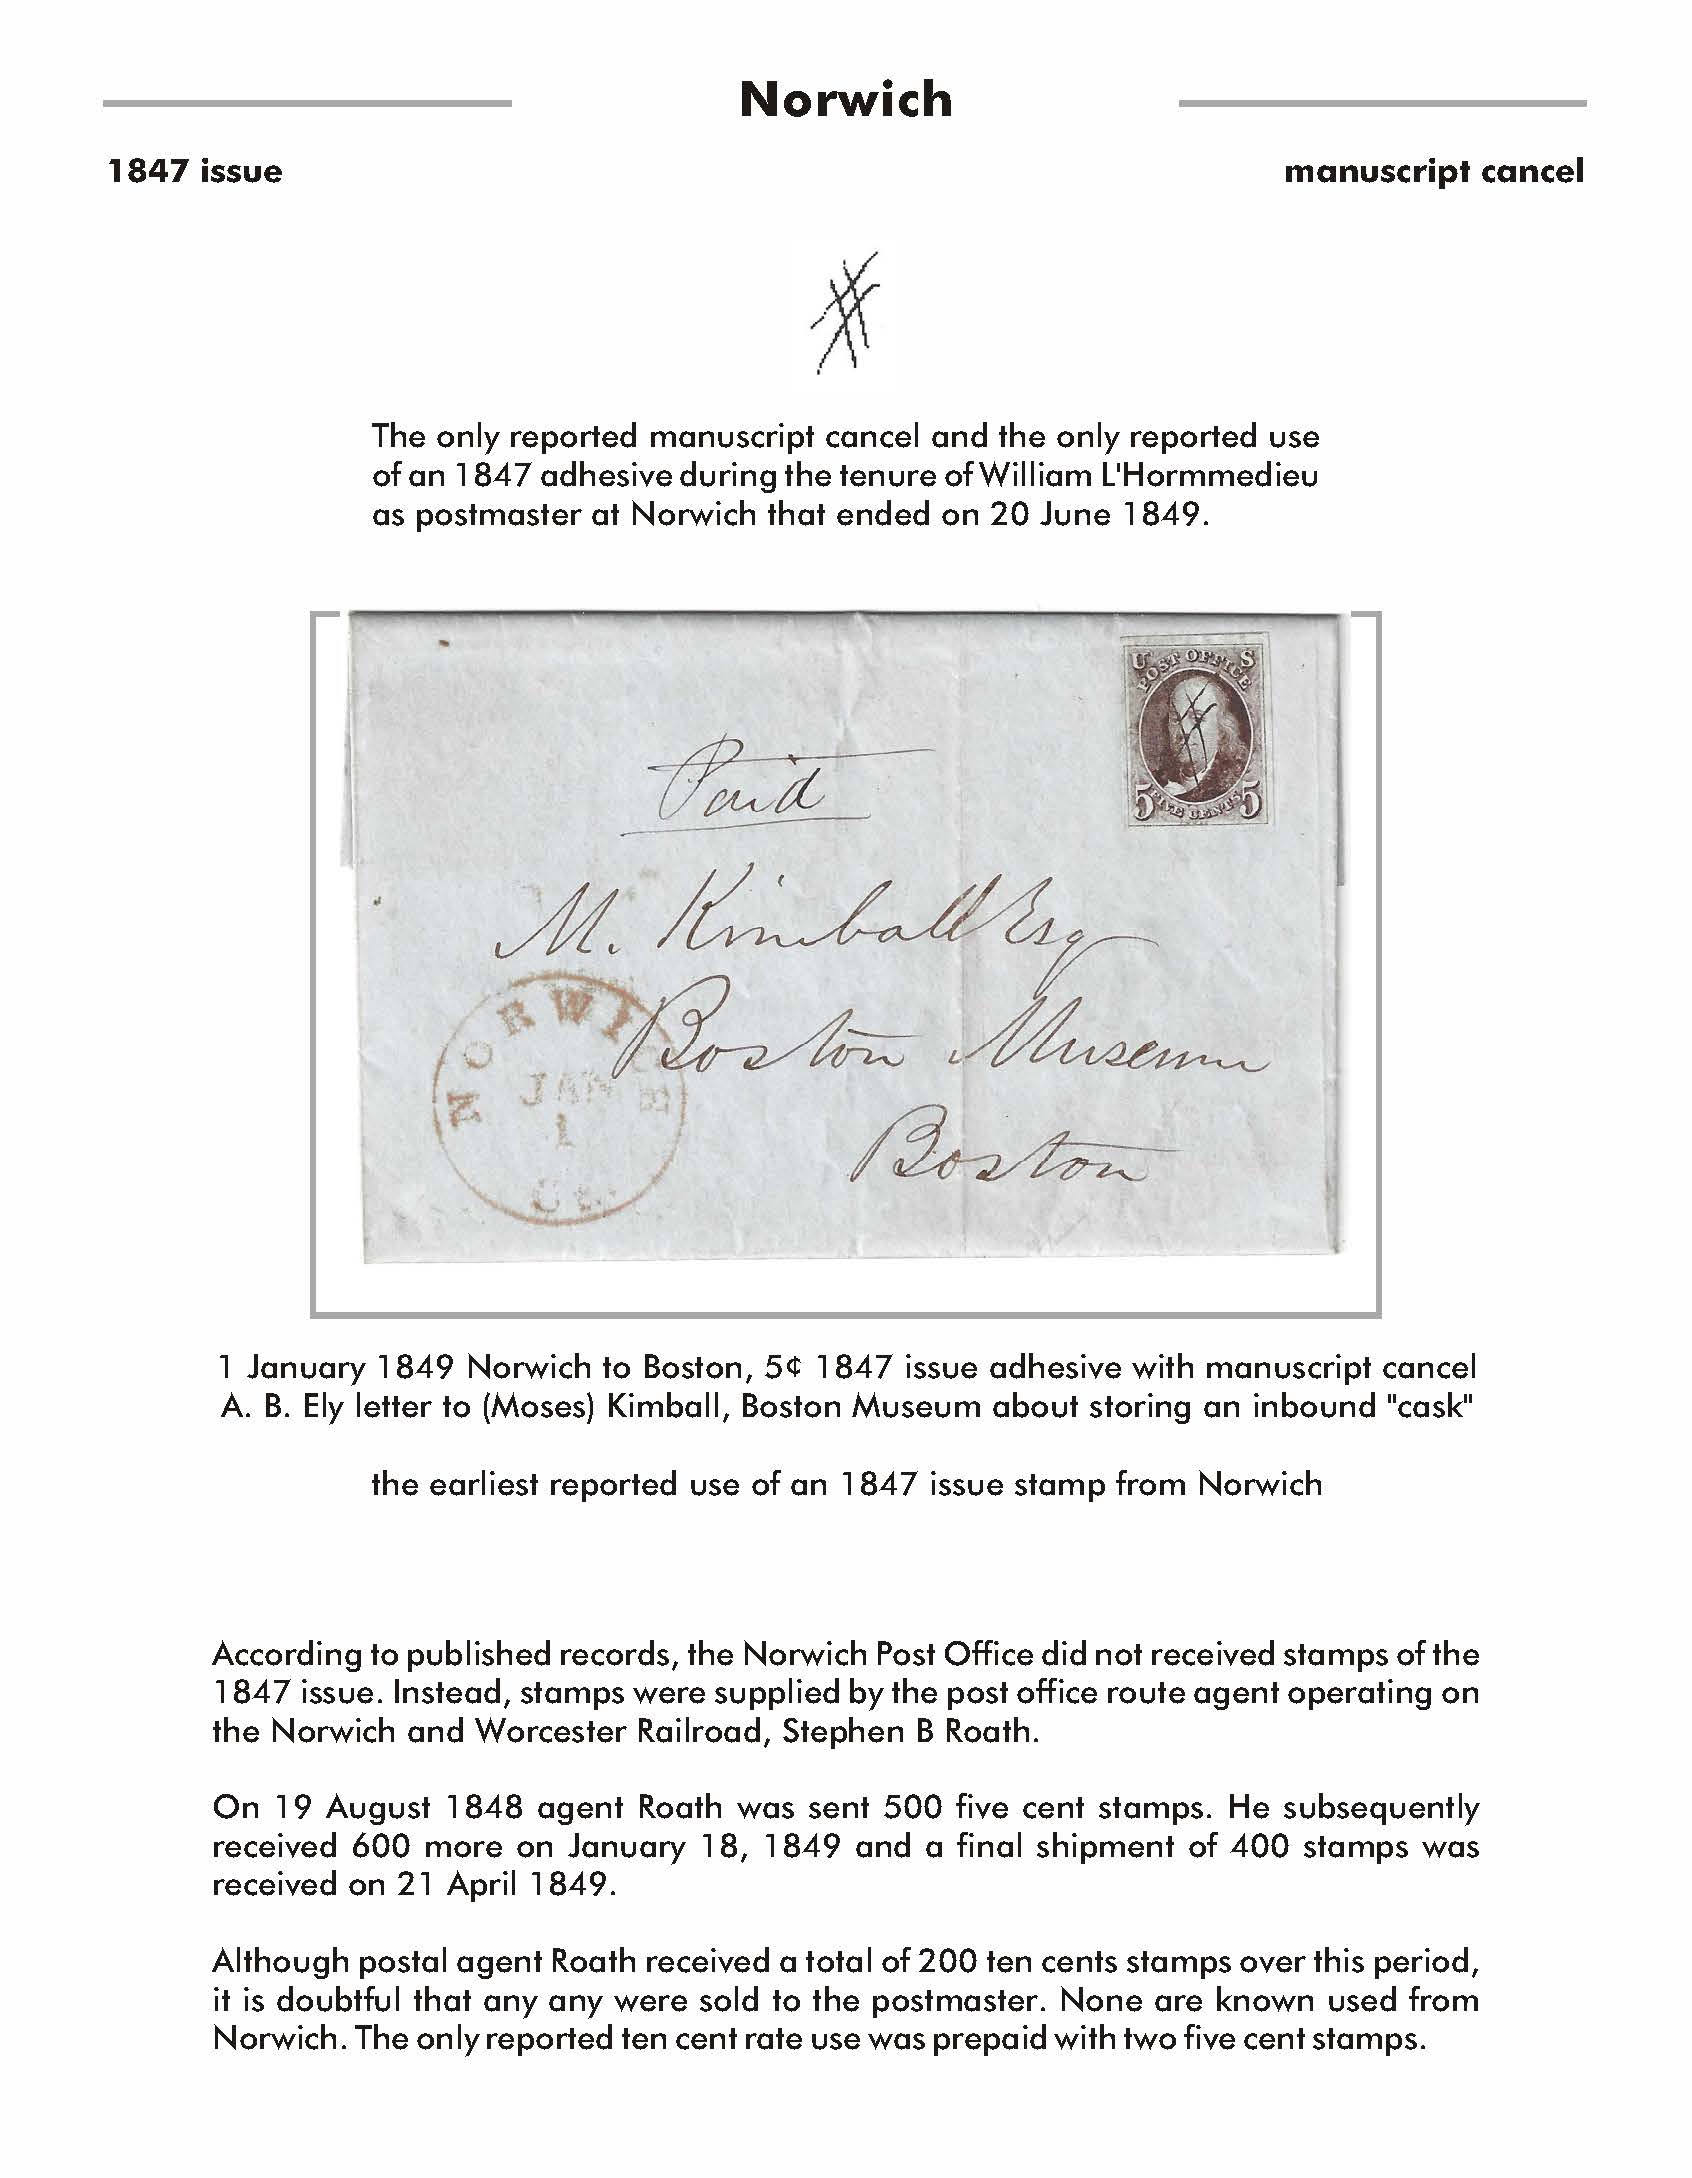 Norwich
1847 issue
manuscript cancel
The only reported manuscript cancel and the only reported use
of an 1847 adhesive during the tenure of William L'Hormmedieu
as postmaster at Norwich that ended on 20 June 1849.
U S
POST OFFICE
5 FIVE CENTS 5
Paid
M. Kimball Esq
Boston Museum
Boston
NORWICH
JAN
1
Ct.
1 January 1849 Norwich to Boston, 5¢ 1847 issue adhesive with manuscript cancel
A. B. Ely letter to (Moses) Kimball, Boston Museum about storing an inbound "cask"
the earliest reported use of an 1847 issue stamp from Norwich
According to published records, the Norwich Post Office did not received stamps of the
1847 issue. Instead, stamps were supplied by the post office route agent operating on
the Norwich and Worcester Railroad, Stephen B Roath.
On 19 August 1848 agent Roath was sent 500 five cent stamps. He subsequently
received 600 more on January 18, 1849 and a final shipment of 400 stamps was
received on 21 April 1849.
Although postal agent Roath received a total of 200 ten cents stamps over this period,
it is doubtful that any any were sold to the postmaster. None are known used from
Norwich. The only reported ten cent rate use was prepaid with two five cent stamps.